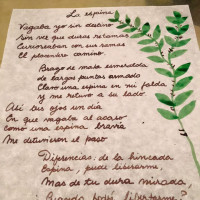 La espina
Vagaba yo sin destino
Sin ver que duras retamas
Curioseaban con sus ramas
El placentero camino.
Brazo de mata esmeralda
de largas puntas armado
Clavó una espina en mi falda
y me retuvo a su lado.
Así tus ojos un día
En que vagaba al acaso
como una espina bravía
Me detuvieron el paso
Diferencias: de la hincada
Espina, pude librarme,
Mas de tu dura mirada,
Cuándo podré libertarme?